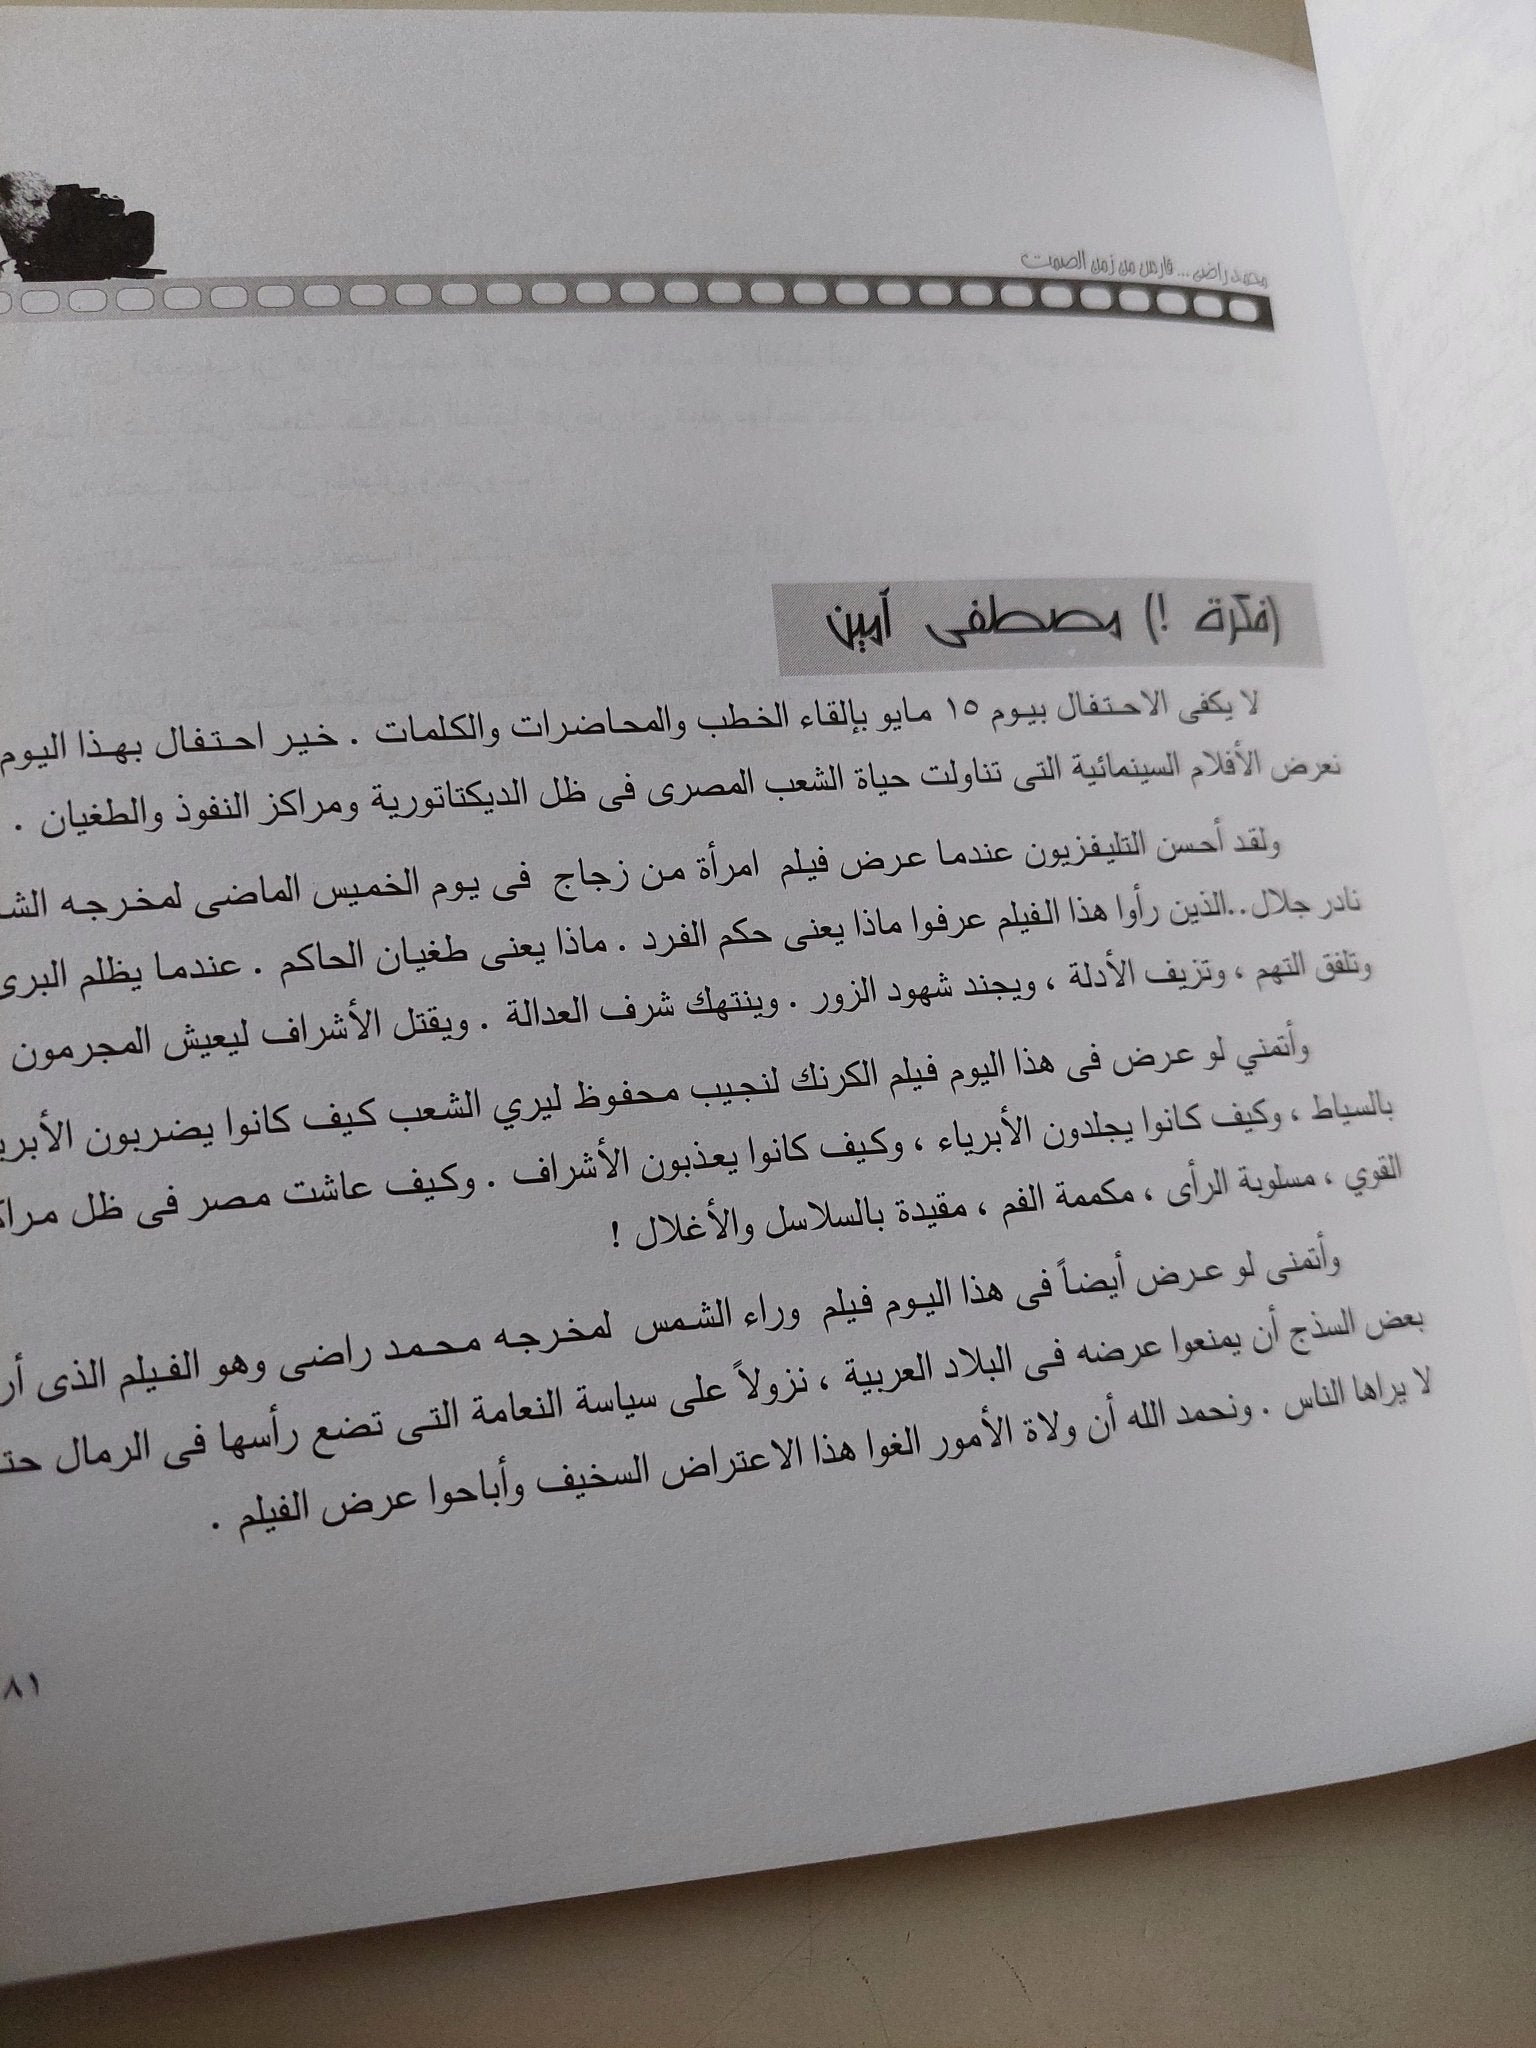 محمد راضى ... فارس من زمن الصمت
(فكرة !) مصطفى أمين
لا يكفى الاحتفال بيوم ١٥ مايو بإلقاء الخطب والمحاضرات والكلمات . خير احتفال بهذا اليوم
نعرض الأفلام السينمائية التى تناولت حياة الشعب المصرى فى ظل الديكتاتورية ومراكز النفوذ والطغيان .
ولقد أحسن التليفزيون عندما عرض فيلم امرأة من زجاج فى يوم الخميس الماضى لمخرجه
نادر جلال..الذين رأوا هذا الفيلم عرفوا ماذا يعنى حكم الفرد . ماذا يعنى طغيان الحاكم . عندما يظلم
وتلفق التهم ، وتزيف الأدلة ، ويجند شهود الزور . وينتهك شرف العدالة . ويقتل الأشراف ليعيش المجرمون
وأتمني لو عرض فى هذا اليوم فيلم الكرنك لنجيب محفوظ ليري الشعب كيف كانوا يضربون
بالسياط ، وكيف كانوا يجلدون الأبرياء ، وكيف كانوا يعذبون الأشراف . وكيف عاشت مصر فى ظل
القوي ، مسلوبة الرأى ، مكممة الفم ، مقيدة بالسلاسل والأغلال !
وأتمنى لو عرض أيضاً فى هذا اليوم فيلم وراء الشمس لمخرجه محمد راضى وهو الفيلم الذى
بعض السذج أن يمنعوا عرضه فى البلاد العربية ، نزولاً على سياسة النعامة التى تضع رأسها فى الرمال
لا يراها الناس . ونحمد الله أن ولاة الأمور الغوا هذا الاعتراض السخيف وأباحوا عرض الفيلم .
٨١